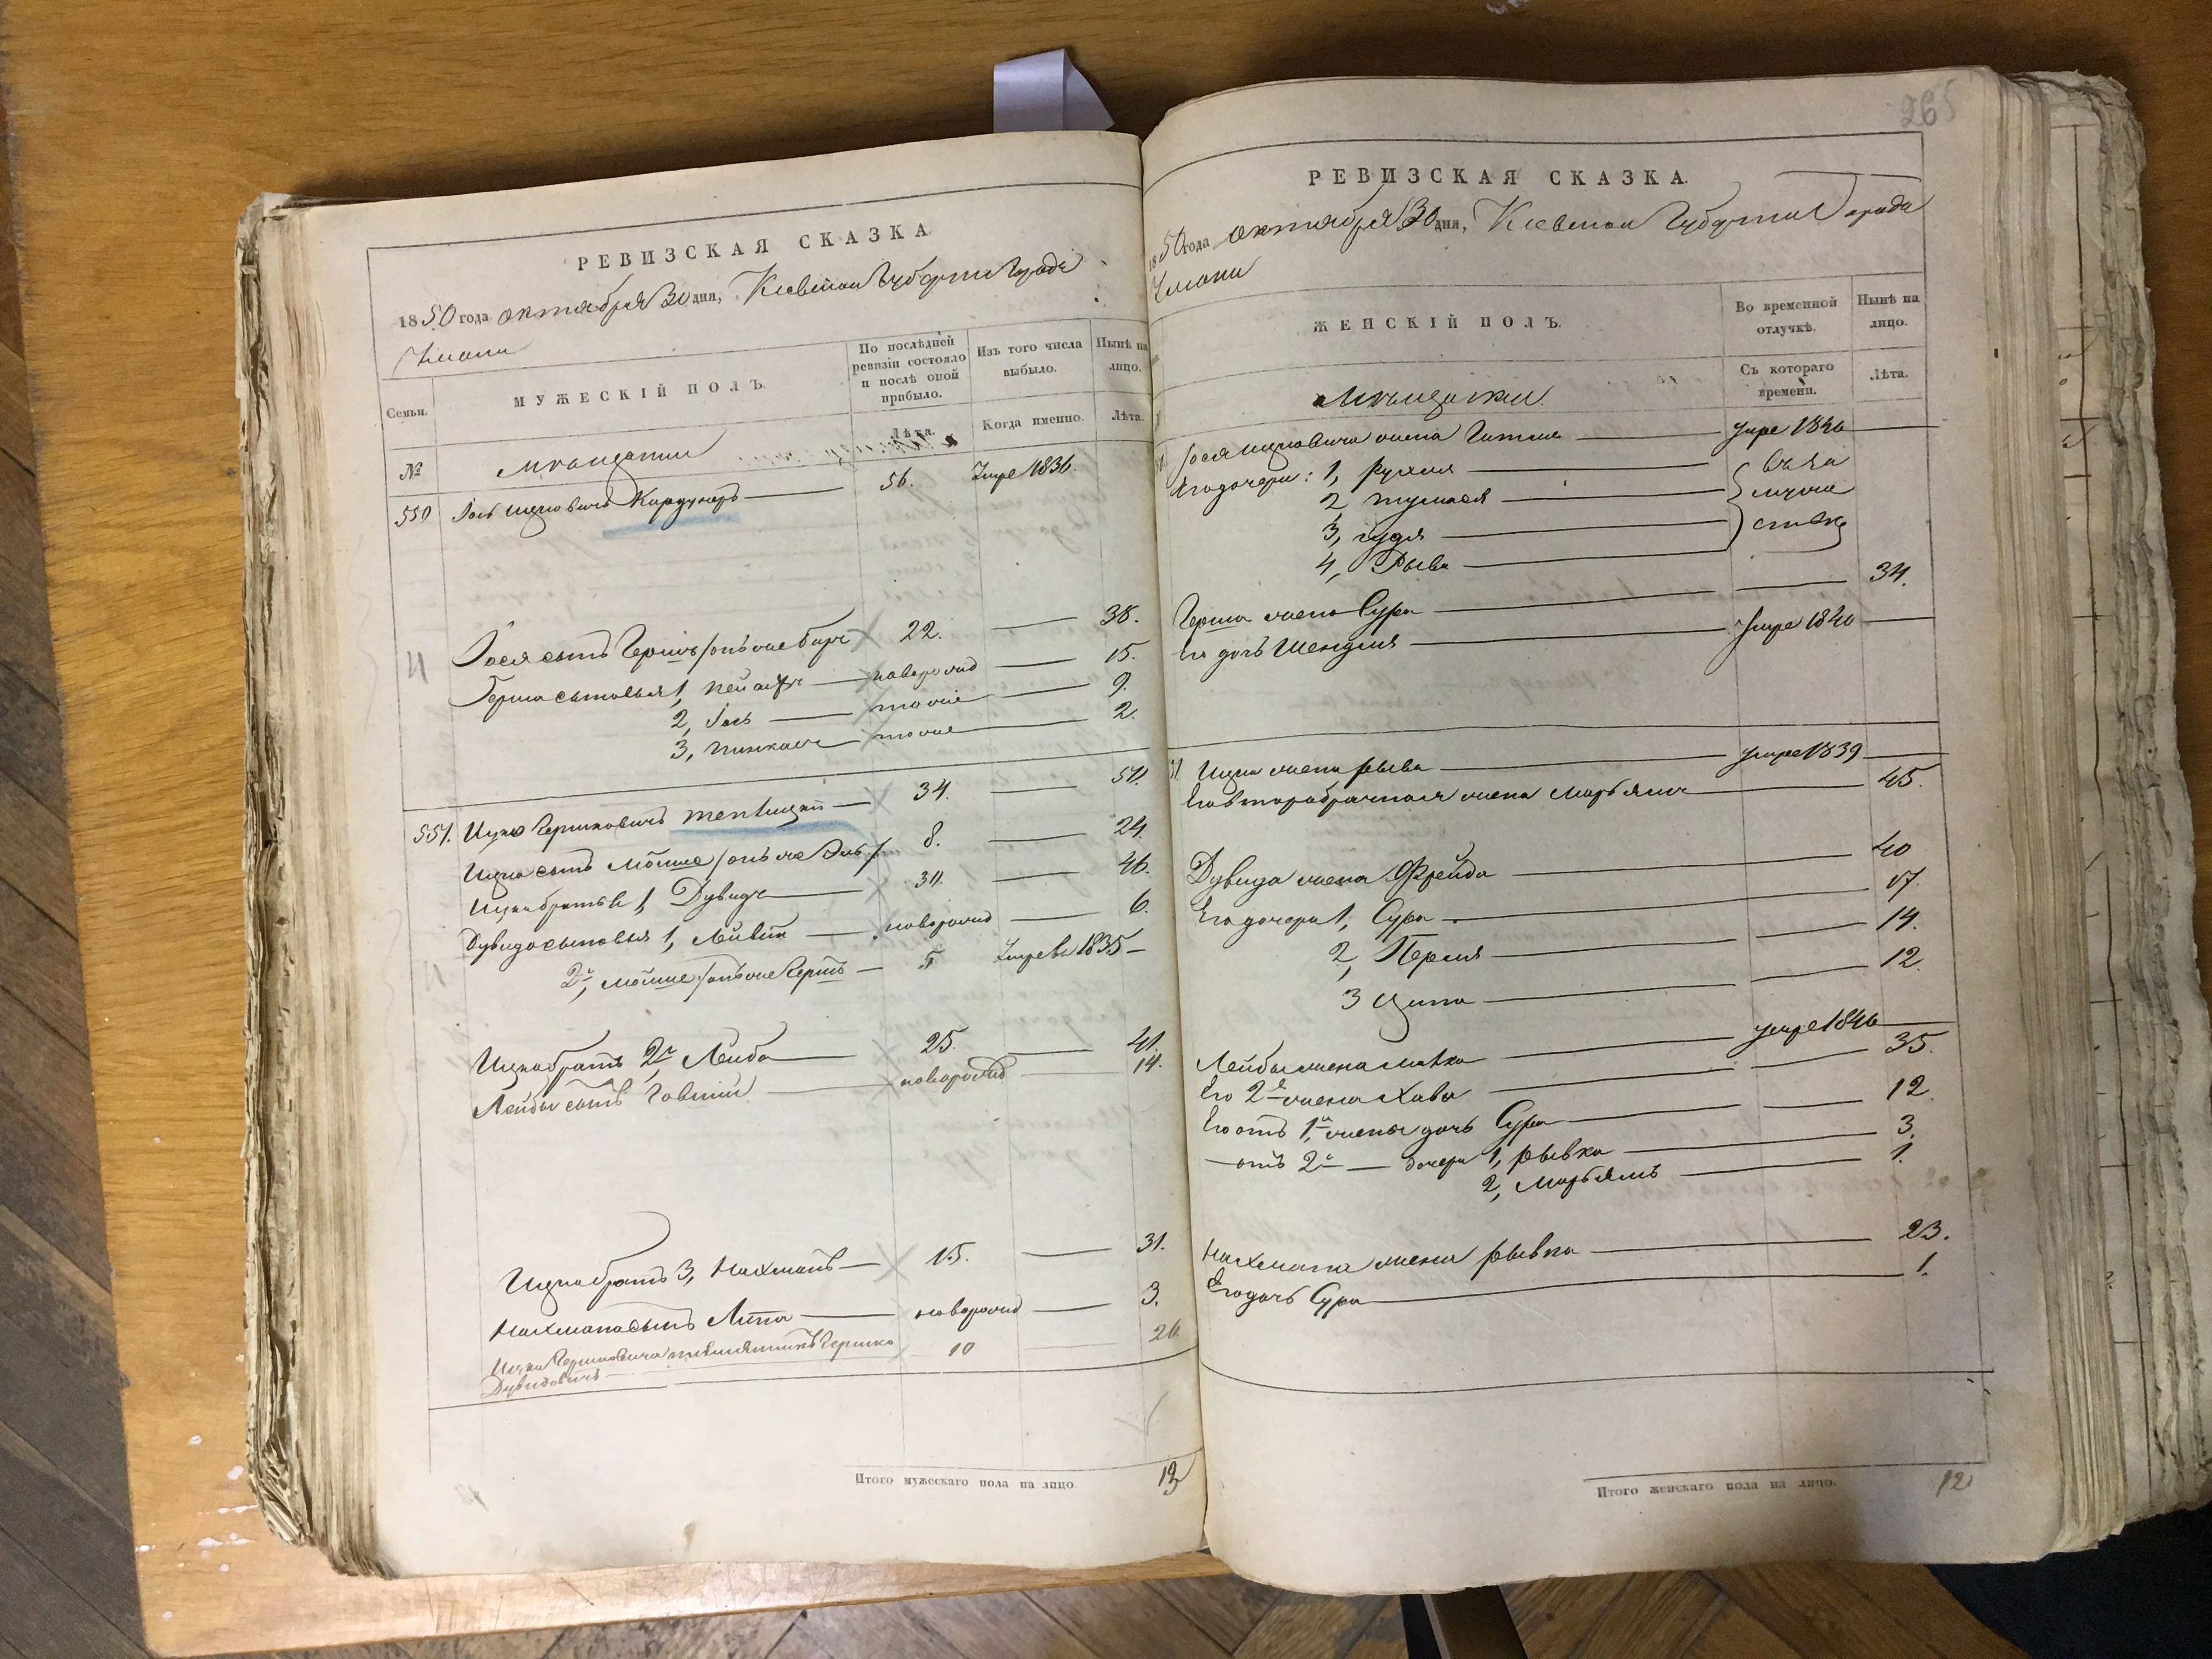 РЕВИЗСКАЯ СКАЗКА
1850 года октября 30 дня, Киевской Губернии Города
Умани
Семьи.
МУЖЕСКІЙ ПОЛЪ.
По послѣдней ревизіи состояло и послѣ оной прибыло.
Изъ того числа выбыло.
Нынѣ на лицо.
Лѣта.
Когда именно.
Лѣта.
№
Мѣщане
550 Іось Ицковичъ 56. Умре 1836.
4
Іося сынъ Гершъ 22. — 38.
Герша сыновья 1, новорожд — 15.
2, Іось — тоже — 9.
3, Пинхасъ — тоже — 2.
551. Ицко Гершковичъ — 34. — 50.
Ицка сынъ Мошко 8. — 24.
Ицка братья 1, Дувидъ — 30. — 46.
Дувида сыновья 1, — новорожд — 6.
2й, Мошко — 5. Умре въ 1835 —
Ицка братъ 2й, Лейба — 25. — 41.
Лейбы сынъ — новорожд — 14.
Ицка братъ 3, Нахманъ — 15. — 31.
Нахмана сынъ Липа — новорожд — 3.
Ицки Гершковича племянникъ Гершко 10 26.
Дувидовичъ
Итого мужескаго пола на лицо. 13
265
РЕВИЗСКАЯ СКАЗКА.
1850 года октября 30 дня, Киевской Губернии Города
Умани
ЖЕНСКІЙ ПОЛЪ.
Во временной отлучкѣ.
Нынѣ на лицо.
Съ котораго времени.
Лѣта.
Іося Ицковича жена — умре 1840
Его дочери: 1, Рухля
2,
3, Гудя
4, Рыва
въ за
муже
ствѣ
Герша жена Сура — 34.
Его дочь Шендля — умре 1840
Ицка жена Рыва — умре 1839
Его второбрачная жена Марьямъ — 45.
Дувида жена Фрейда — 40
Его дочери 1, Сура — 17.
2, Перля — 14.
3 Ципа — 12.
Лейбы жена — умре 1846
Его 2я жена Хава — 35.
Его отъ 1й жены дочь Сура — 12.
— отъ 2й — дочери 1, Рывка — 3.
2, Марьямъ — 1.
Нахмана жена Рывка — 23.
Его дочь Сура — 1.
Итого женскаго пола на лицо. 12